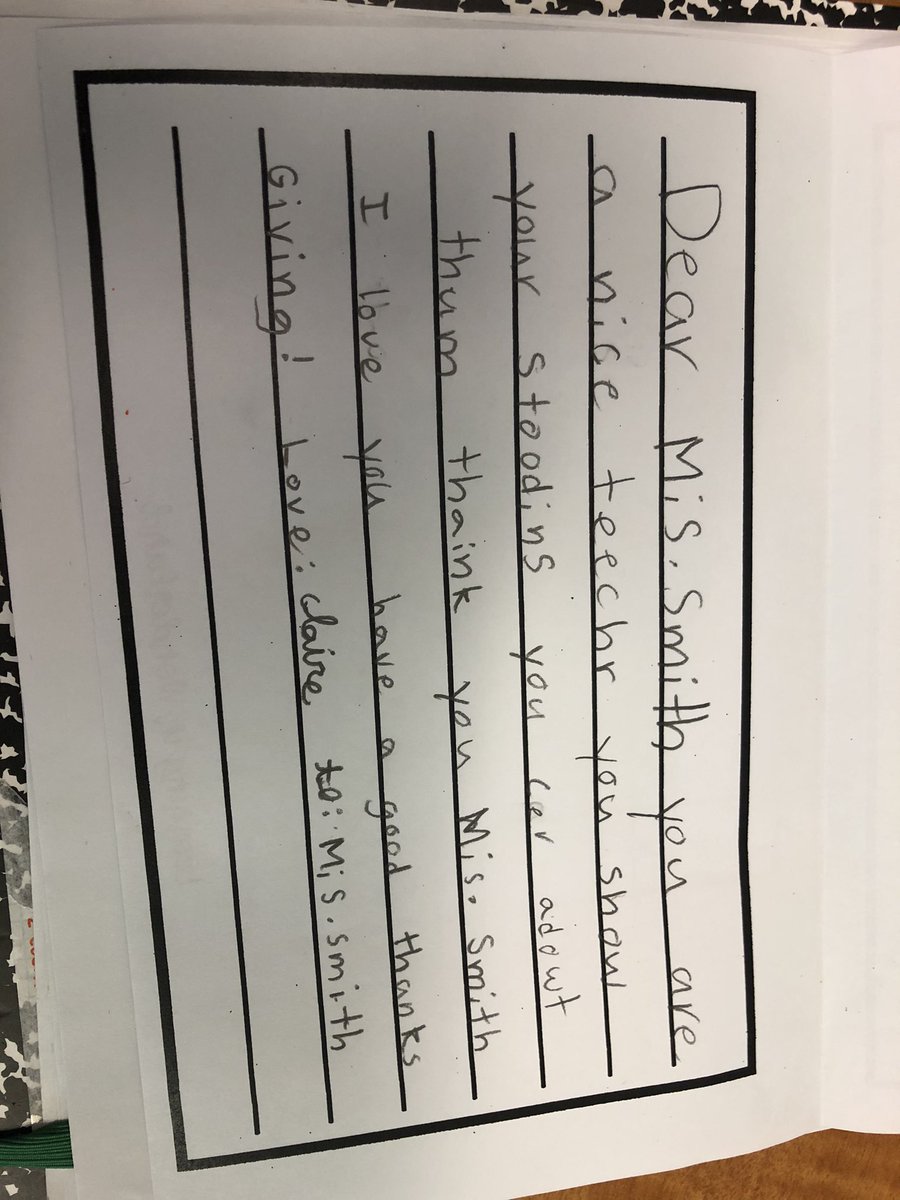 Dear Mis. Smith you are
a nice teechr you show
your stoodins you cer adowt
thum thaink you Mis. Smith
I love you have a good thanks
Giving! Love: claire to: Mis. smith